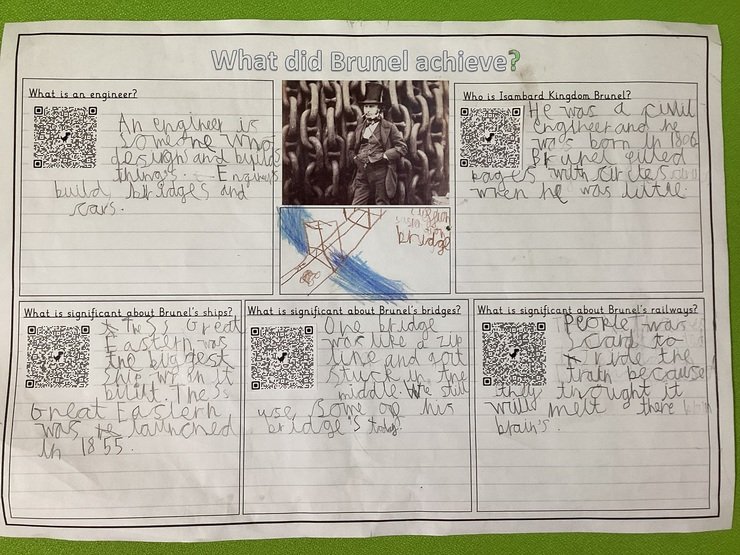 What did Brunel achieve?
What is an engineer?
An engineer is
someone who
design and builds
things. Engineers
build bridges and
cars.
Who is Isambard Kingdom Brunel?
He was a civil
engineer and he
was born in 1806
Brunel filled
pages with circles
when he was little.
bridge
What is significant about Brunel's ships?
The SS Great
Eastern was
the biggest
ship wen it
built. The SS
Great Eastern
was launched
in 1855.
What is significant about Brunel's bridges?
One bridge
was like a zip
line and got
stuck in the
middle. We still
use some of his
bridge's today.
What is significant about Brunel's railways?
People was
scard to
ride the
train because
they thought it
would melt there
brain's.